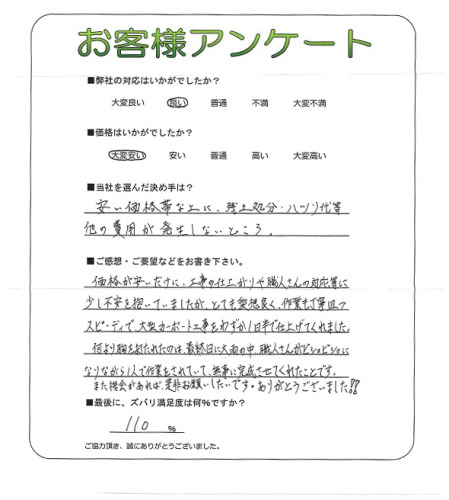 お客様アンケート
■弊社の対応はいかがでしたか?
大変良い 良い 普通 不満 大変不満
■価格はいかがでしたか?
大変安い 安い 普通 高い 大変高い
■当社を選んだ決め手は?
安い価格帯な上に、残土処分・ハツリ代等
他の費用が発生しないところ。
■ご感想・ご要望などをお書き下さい。
価格が安いだけに、工事の仕上がりや職人さんの対応等に
少し不安を抱いていましたが、とても愛想良く、作業も丁寧且つ
スピーディで、大型カーポート工事をわずか1日半で仕上げてくれました。
何より胸を打たれたのは最終日に大雨の中、職人さんがビショビショに
なりながら1人で作業をされていて、無事に完成させてくれたことです。
また機会があれば、是非お願いしたいです。ありがとうございました!!
■最後に、ズバリ満足度は何%ですか?
110 %
ご協力頂き、誠にありがとうございました。